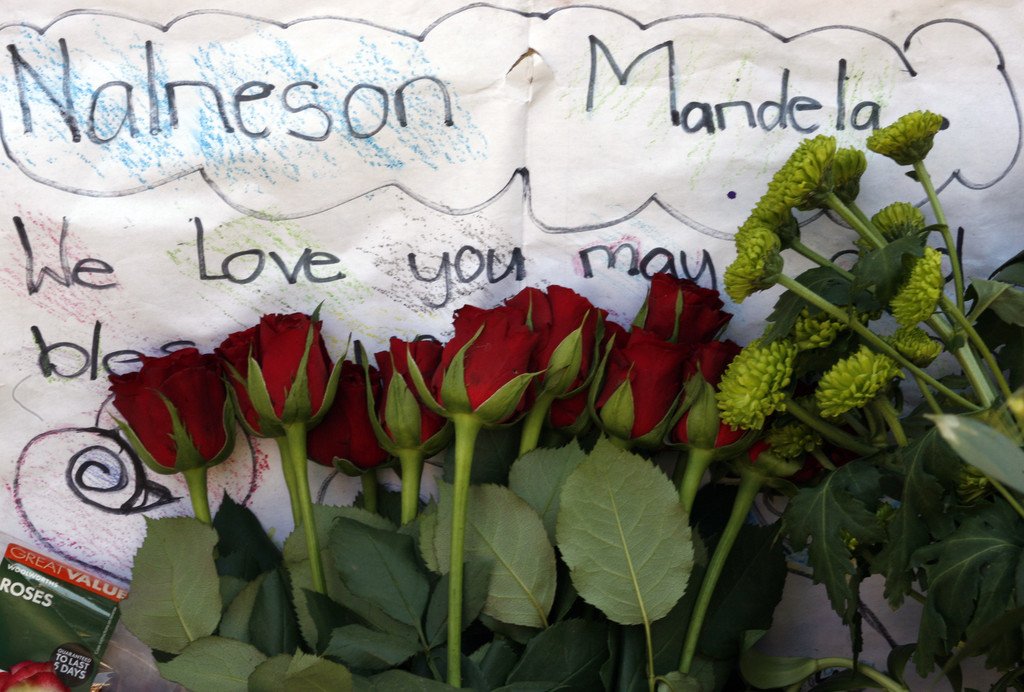 Nalneson Mandela
We Love you may
GREAT VALUE
WOOLWORTHS
ROSES
GUARANTEED
TO LAST
5 DAYS